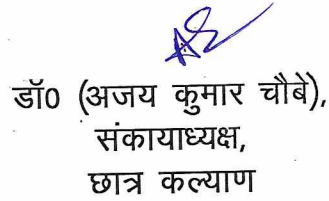 डॉ0 (अजय कुमार चौबे),
संकायाध्यक्ष,
छात्र कल्याण